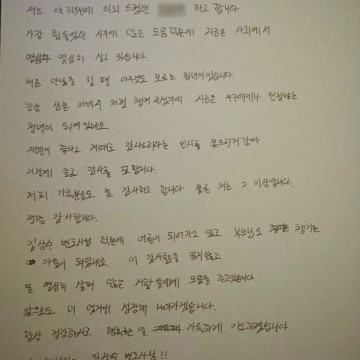 저는 약 1년전에 의뢰 드렸던 라고 합니다
가장 힘들었던 시기에 많은 도움 덕분에 지금은 사회에서
열심히 살고 있습니다.
처음 만났을 때 아무것도 모르는 청년이었습니다
항상 챙겨 주셨기에 지금은 누구에게나 인정받는
청년이 되어 있네요.
재판이 끝나고 감사드린다는 인사를 못드린거 같아
이렇게 글로 감사를 표합니다.
저희 가족분들도 늘 감사하고 합니다 물론 저는 그 이상입니다.
정말 감사합니다.
변호사님 덕분에 어른이 되어가고 있고 부모님도 챙기는
아들이 되었네요. 이 감사함을 잊지않고
늘 열심히 살며 많은 사람들에게 도움을 주고싶습니다.
앞으로도 더 멋지게 성장해 나아가겠습니다.
항상 건강하시고 행복한 일 가득하게 기도하겠습니다
변호사님!!